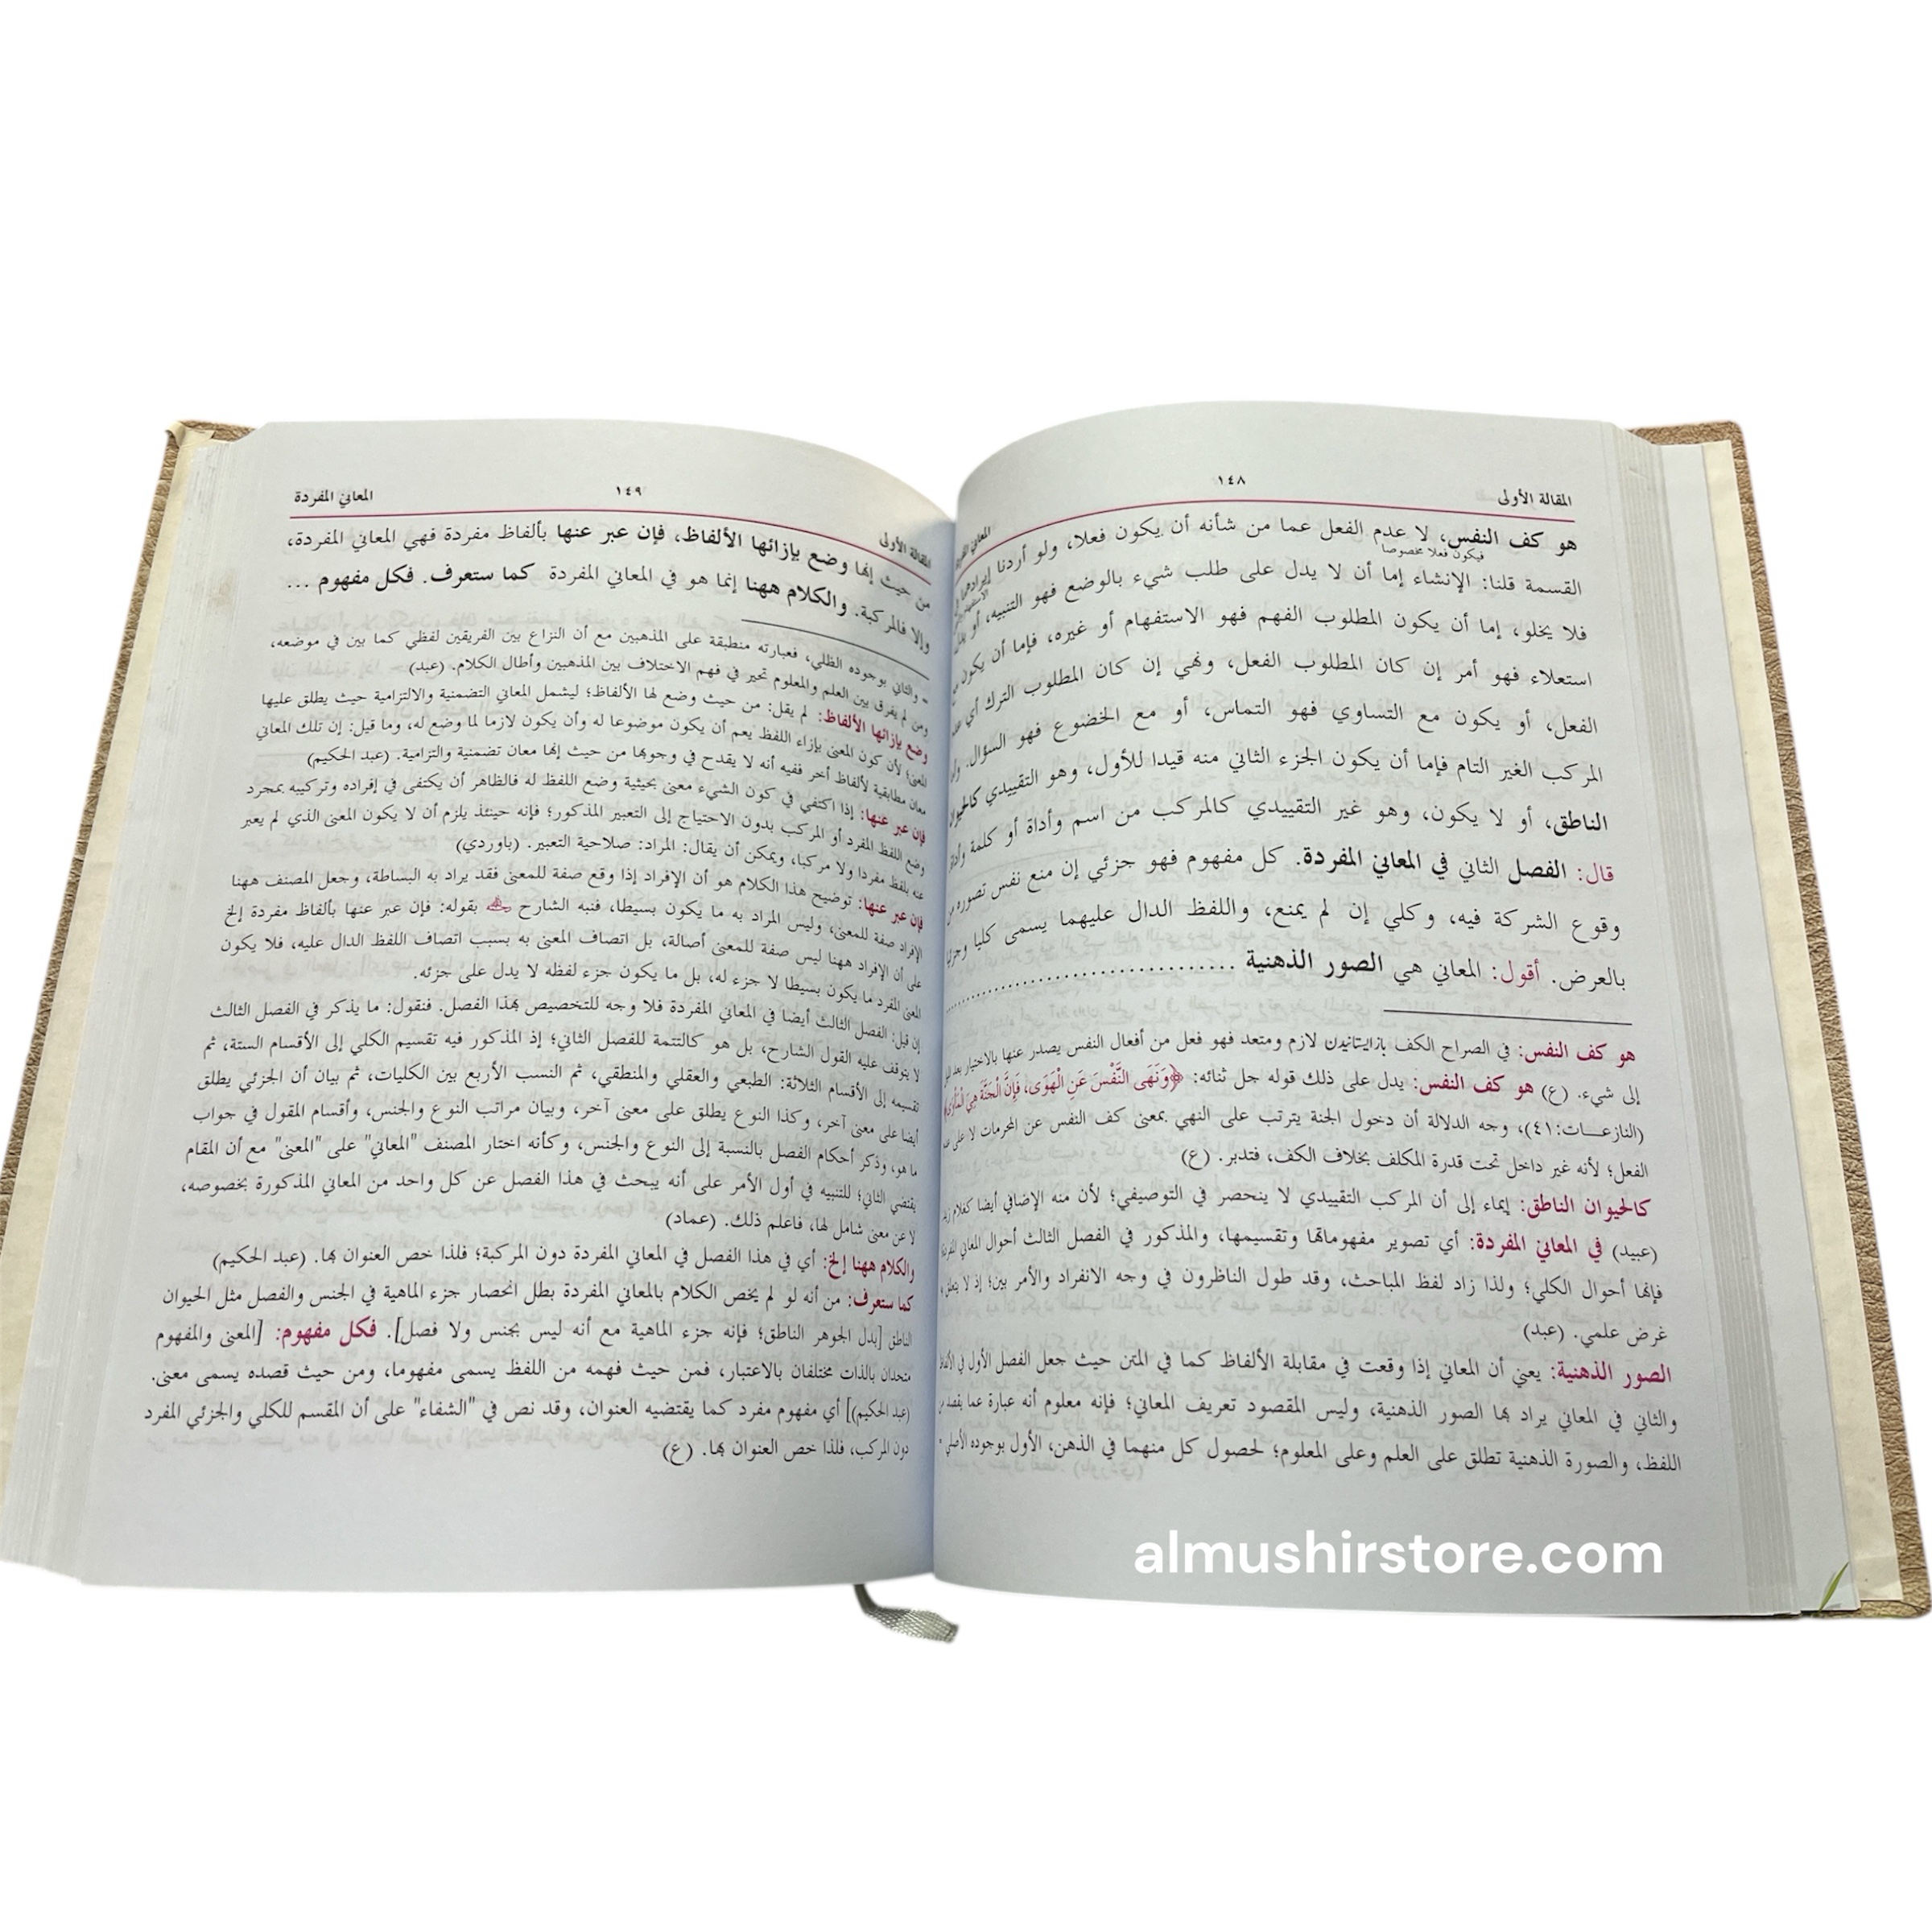 المقالة الأولى ١٤٨ المعاني
هو كف النفس، لا عدم الفعل عما من شأنه أن يكون فعلا، ولو أردنا إيرادها
فيكون فعلا مخصوصا
القسمة قلنا: الإنشاء إما أن لا يدل على طلب شيء بالوضع فهو التنبيه، أو
فلا يخلو، إما أن يكون المطلوب الفهم فهو الاستفهام أو غيره، فإما أن يكون
استعلاء فهو أمر إن كان المطلوب الفعل، ونهي إن كان المطلوب الترك أي
الفعل، أو يكون مع التساوي فهو التماس، أو مع الخضوع فهو السؤال.
المركب الغير التام فإما أن يكون الجزء الثاني منه قيدا للأول، وهو التقييدي كالحيوان
الناطق، أو لا يكون، وهو غير التقييدي كالمركب من اسم وأداة أو كلمة وأداة
قال: الفصل الثاني في المعاني المفردة. كل مفهوم فهو جزئي إن منع نفس تصوره
وقوع الشركة فيه، وكلي إن لم يمنع، واللفظ الدال عليهما يسمى كليا
بالعرض. أقول: المعاني هي الصور الذهنية ........................
هو كف النفس: في الصراح الكف بازایستانیدن لازم ومتعد فهو فعل من أفعال النفس يصدر عنها بالاختيار بعد
إلى شيء. (ع) هو كف النفس: يدل على ذلك قوله جل ثنائه: ﴿وَنَهَى النَّفْسَ عَنِ الْهَوَى، فَإِنَّ الْجَنَّةَ هِيَ الْمَأْوَى﴾
(النازعـــات:٤١)، وجه الدلالة أن دخول الجنة يترتب على النهي بمعنى كف النفس عن المحرمات لا على
الفعل؛ لأنه غير داخل تحت قدرة المكلف بخلاف الكف، فتدبر. (ع)
كالحيوان الناطق: إيماء إلى أن المركب التقييدي لا ينحصر في التوصيفي؛ لأن منه الإضافي أيضا كغلام زيد.
(عبيد) في المعاني المفردة: أي تصوير مفهوماتها وتقسيمها، والمذكور في الفصل الثالث أحوال المعاني
فإنها أحوال الكلي؛ ولذا زاد لفظ المباحث، وقد طول الناظرون في وجه الانفراد والأمر بين؛ إذ لا
غرض علمي. (عبد)
الصور الذهنية: يعني أن المعاني إذا وقعت في مقابلة الألفاظ كما في المتن حيث جعل الفصل الأول في
والثاني في المعاني يراد بها الصور الذهنية، وليس المقصود تعريف المعاني؛ فإنه معلوم أنه عبارة عما يقصد
اللفظ، والصورة الذهنية تطلق على العلم وعلى المعلوم؛ لحصول كل منهما في الذهن، الأول بوجوده الأصلي =
almushirstore.com
المقالة الأولى ١٤٩ المعاني المفردة
من حيث إنها وضع بإزائها الألفاظ، فإن عبر عنها بألفاظ مفردة فهي المعاني المفردة،
وإلا فالمركبة. والكلام ههنا إنما هو في المعاني المفردة كما ستعرف. فكل مفهوم ...
= والثاني بوجوده الظلي، فعبارته منطبقة على المذهبين مع أن النزاع بين الفريقين لفظي كما بين في موضعه،
ومن لم يفرق بين العلم والمعلوم تحير في فهم الاختلاف بين المذهبين وأطال الكلام. (عبد)
وضع بإزائها الألفاظ: لم يقل: من حيث وضع لها الألفاظ؛ ليشمل المعاني التضمنية والالتزامية حيث يطلق عليها
المعنى؛ لأن كون المعنى بإزاء اللفظ يعم أن يكون موضوعا له وأن يكون لازما لما وضع له، وما قيل: إن تلك المعاني
معان مطابقية لألفاظ أخر ففيه أنه لا يقدح في وجوبها من حيث إنها معان تضمنية والتزامية. (عبد الحكيم)
فإن عبر عنها: إذا اكتفي في كون الشيء معنى بحيثية وضع اللفظ له فالظاهر أن يكتفى في إفراده وتركيبه بمجرد
وضع اللفظ المفرد أو المركب بدون الاحتياج إلى التعبير المذكور؛ فإنه حينئذ يلزم أن لا يكون المعنى الذي لم يعبر
عنه بلفظ مفردا ولا مركبا، ويمكن أن يقال: المراد: صلاحية التعبير. (باوردي)
فإن عبر عنها: توضيح هذا الكلام هو أن الإفراد إذا وقع صفة للمعنى فقد يراد به البساطة، وجعل المصنف ههنا
الإفراد صفة للمعنى، وليس المراد به ما يكون بسيطا، فنبه الشارح بقوله: فإن عبر عنها بألفاظ مفردة إلخ
على أن الإفراد ههنا ليس صفة للمعنى أصالة، بل اتصاف المعنى به بسبب اتصاف اللفظ الدال عليه، فلا يكون
المعنى المفرد ما يكون بسيطا لا جزء له، بل ما يكون جزء لفظه لا يدل على جزئه.
إن قيل: الفصل الثالث أيضا في المعاني المفردة فلا وجه للتخصيص بهذا الفصل. فنقول: ما يذكر في الفصل الثالث
لا يتوقف عليه القول الشارح، بل هو كالتتمة للفصل الثاني؛ إذ المذكور فيه تقسيم الكلي إلى الأقسام الستة، ثم
تقسيمه إلى الأقسام الثلاثة: الطبعي والعقلي والمنطقي، ثم النسب الأربع بين الكليات، ثم بيان أن الجزئي يطلق
أيضا على معنى آخر، وكذا النوع يطلق على معنى آخر، وبيان مراتب النوع والجنس، وأقسام المقول في جواب
ما هو، وذكر أحكام الفصل بالنسبة إلى النوع والجنس، وكأنه اختار المصنف "المعاني" على "المعنى" مع أن المقام
يقتضي الثاني؛ للتنبيه في أول الأمر على أنه يبحث في هذا الفصل عن كل واحد من المعاني المذكورة بخصوصه،
لا عن معنى شامل لها، فاعلم ذلك. (عماد)
والكلام ههنا إلخ: أي في هذا الفصل في المعاني المفردة دون المركبة؛ فلذا خص العنوان بها. (عبد الحكيم)
كما ستعرف: من أنه لو لم يخص الكلام بالمعاني المفردة بطل انحصار جزء الماهية في الجنس والفصل مثل الحيوان
الناطق [بدل الجوهر الناطق؛ فإنه جزء الماهية مع أنه ليس بجنس ولا فصل]. فكل مفهوم: [المعنى والمفهوم
متحدان بالذات مختلفان بالاعتبار، فمن حيث فهمه من اللفظ يسمى مفهوما، ومن حيث قصده يسمى معنى.
(عبد الحكيم)] أي مفهوم مفرد كما يقتضيه العنوان، وقد نص في "الشفاء" على أن المقسم للكلي والجزئي المفرد
دون المركب، فلذا خص العنوان بها. (ع)